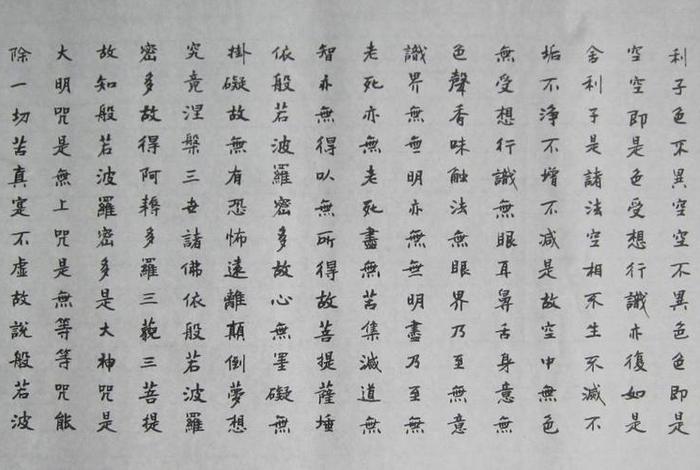 利子色不異空空不異色色即是
空空即是色受想行識亦復如是
舍利子是諸法空相不生不滅不
垢不淨不增不减是故空中無色
無受想行識無眼耳鼻舌身意無
色聲香味触法無眼界乃至無意
識界無無明亦無無明盡乃至無
老死亦無老死盡無苦集滅道無
智亦無得以無所得故菩提薩埵
依般若波羅密多故心無墨礙無
掛礙故無有恐怖遠離顛倒夢想
究竟涅槃三世諸佛依般若波羅
密多故得阿耨多羅三藐三菩提
故知般若波羅密多是大神咒是
大明咒是無上咒是無等等咒能
除一切苦真寔不虛故說般若波